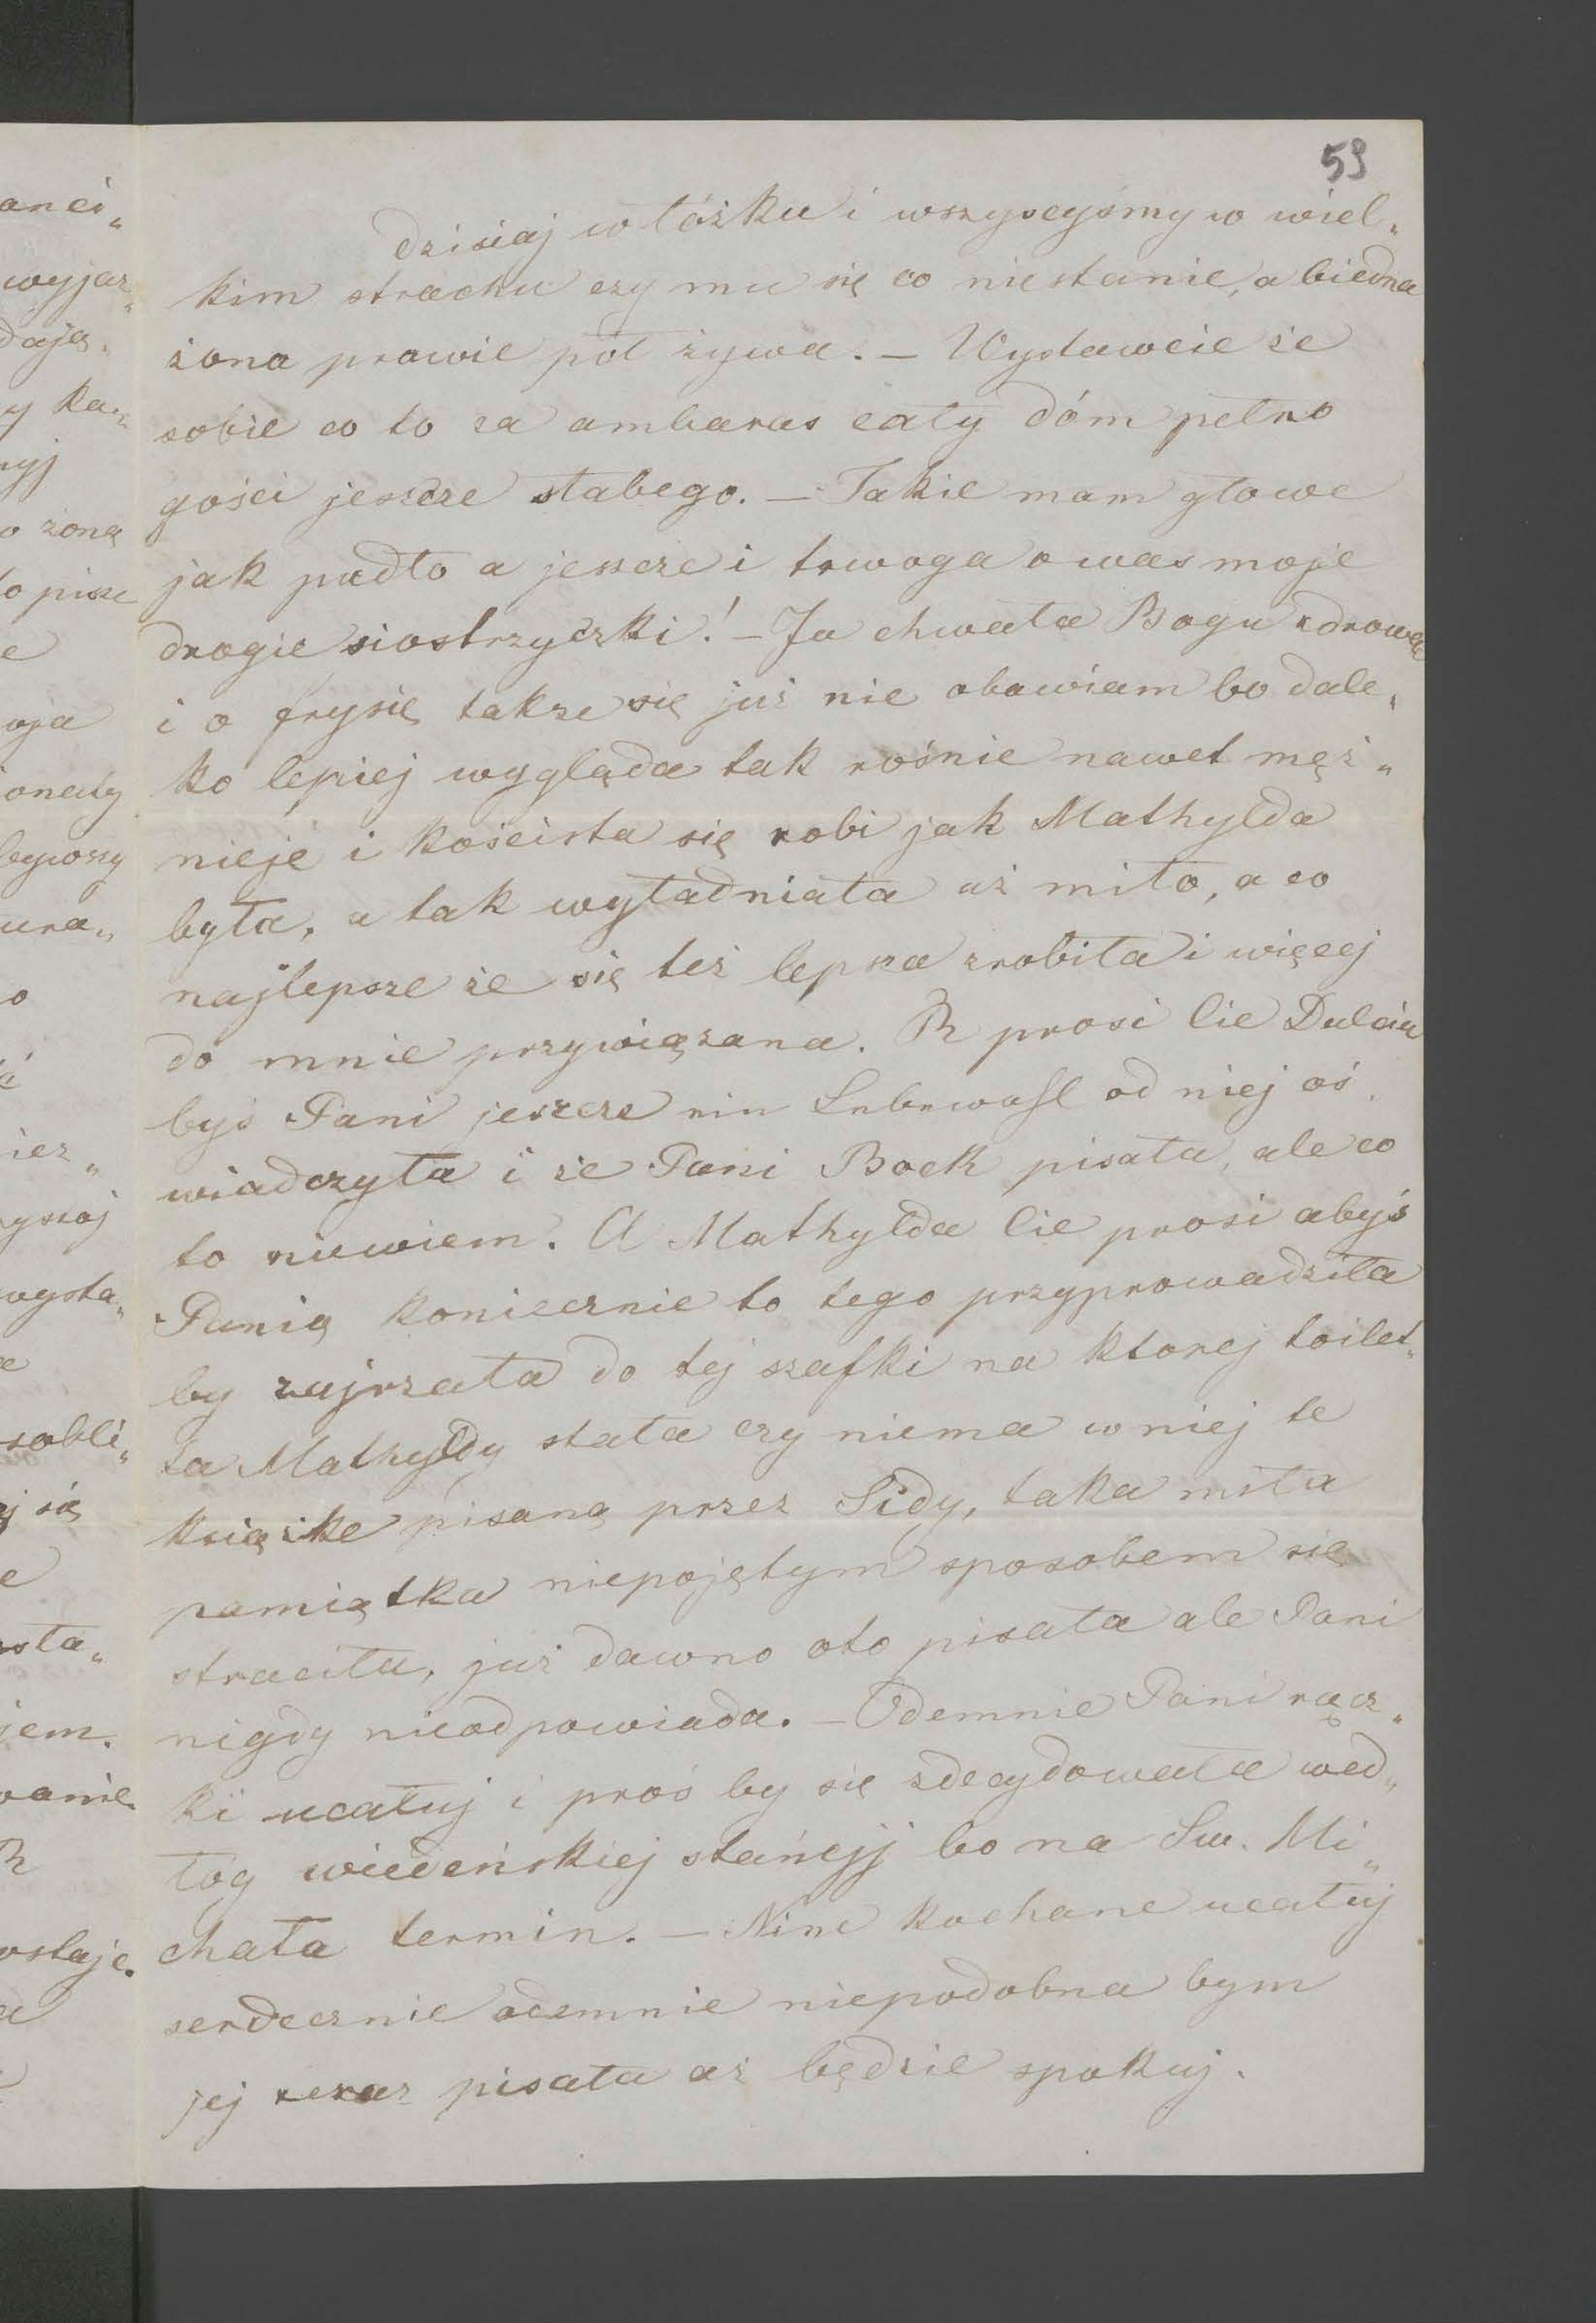 59
anei„
wyjaz„
daję„
y ka„
nyj
o żoną
to pisze
e
oja
onaty
bywszy
ura„
o
iez„
yszoj
wysta„
e
sobli„
j się
e
sta„
jem.
wanie
R
ostaje.
a
dzisiaj w łóżku i wszyscyśmy w wiel„
kim strachu czy mu się co niestanie, a biedna
żona prawie pół żywa. – Wystawcie że
sobie co to za ambaras cały dóm pełno
gości jeszcze słabego. – Takie mam głowe
jak pudło a jeszcze i trwoga o was moje
drogie siostrzyczki! – Ja chwała Bogu zdrowa
i o frysię takze się już nie obawiam bo dale„
ko lepiej wygląda tak rośnie nawet męż„
nieje i koścista się robi jak Mathylda
była, a tak wyładniała aż miło, a co
najlepsze że się też lepsza zrobiła i więcej
do mnie przywiązana. R prosi Cie Dulciu
byś Pani jeszcze ein Lebewohl od niej oś„
wiadczyła i że Pani Bock pisała, ale co
to niewiem. A Mathylda Cie prosi abyś
Panią koniecznie to tego przyprowadziła
by zajrzała do tej szafki na ktorej toilet„
ta Mathyldy stała czy niema w niej te
książke pisaną przez Sidy, taka miła
pamiątka niepojętym sposobem się
straciła, już dawno oto pisała ale Pani
nigdy nieodpowiada. – Odemnie Pani rącz„
ki ucałuj i proś by się zdecydowała wed„
ług wiedeńskiej stańcyj bo na Sw. Mi„
chała termin. – Nine kochane ucałuj
serdecznie odemnie niepodobna bym
jej teraz pisała aż będzie spokuj.